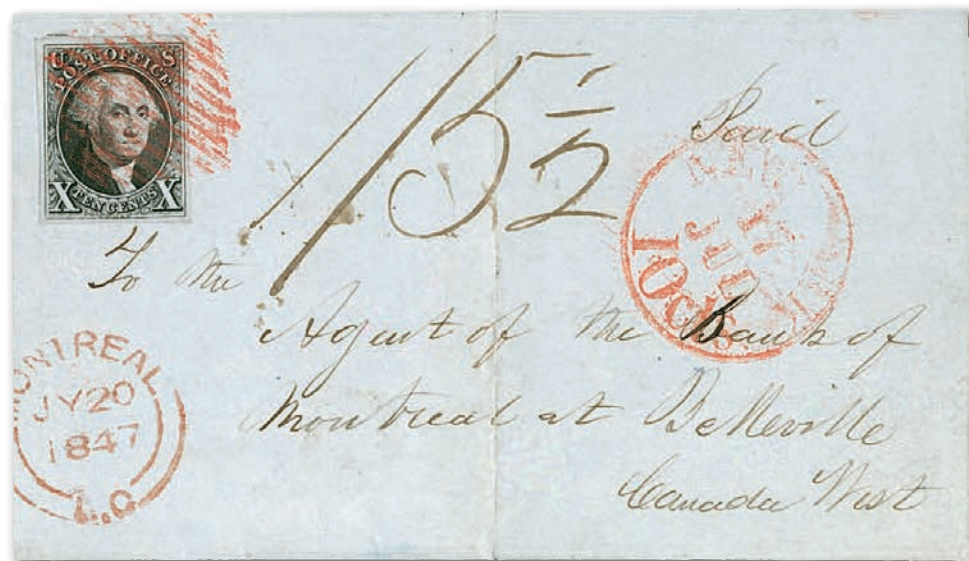 U S
POST OFFICE
X TEN CENTS X
1/5½
Paid
NEW-YORK
17
JUL
10cts.
To the
Agent of the Bank of
Montreal at Belleville
Canada West
MONTREAL
JY 20
1847
L.C